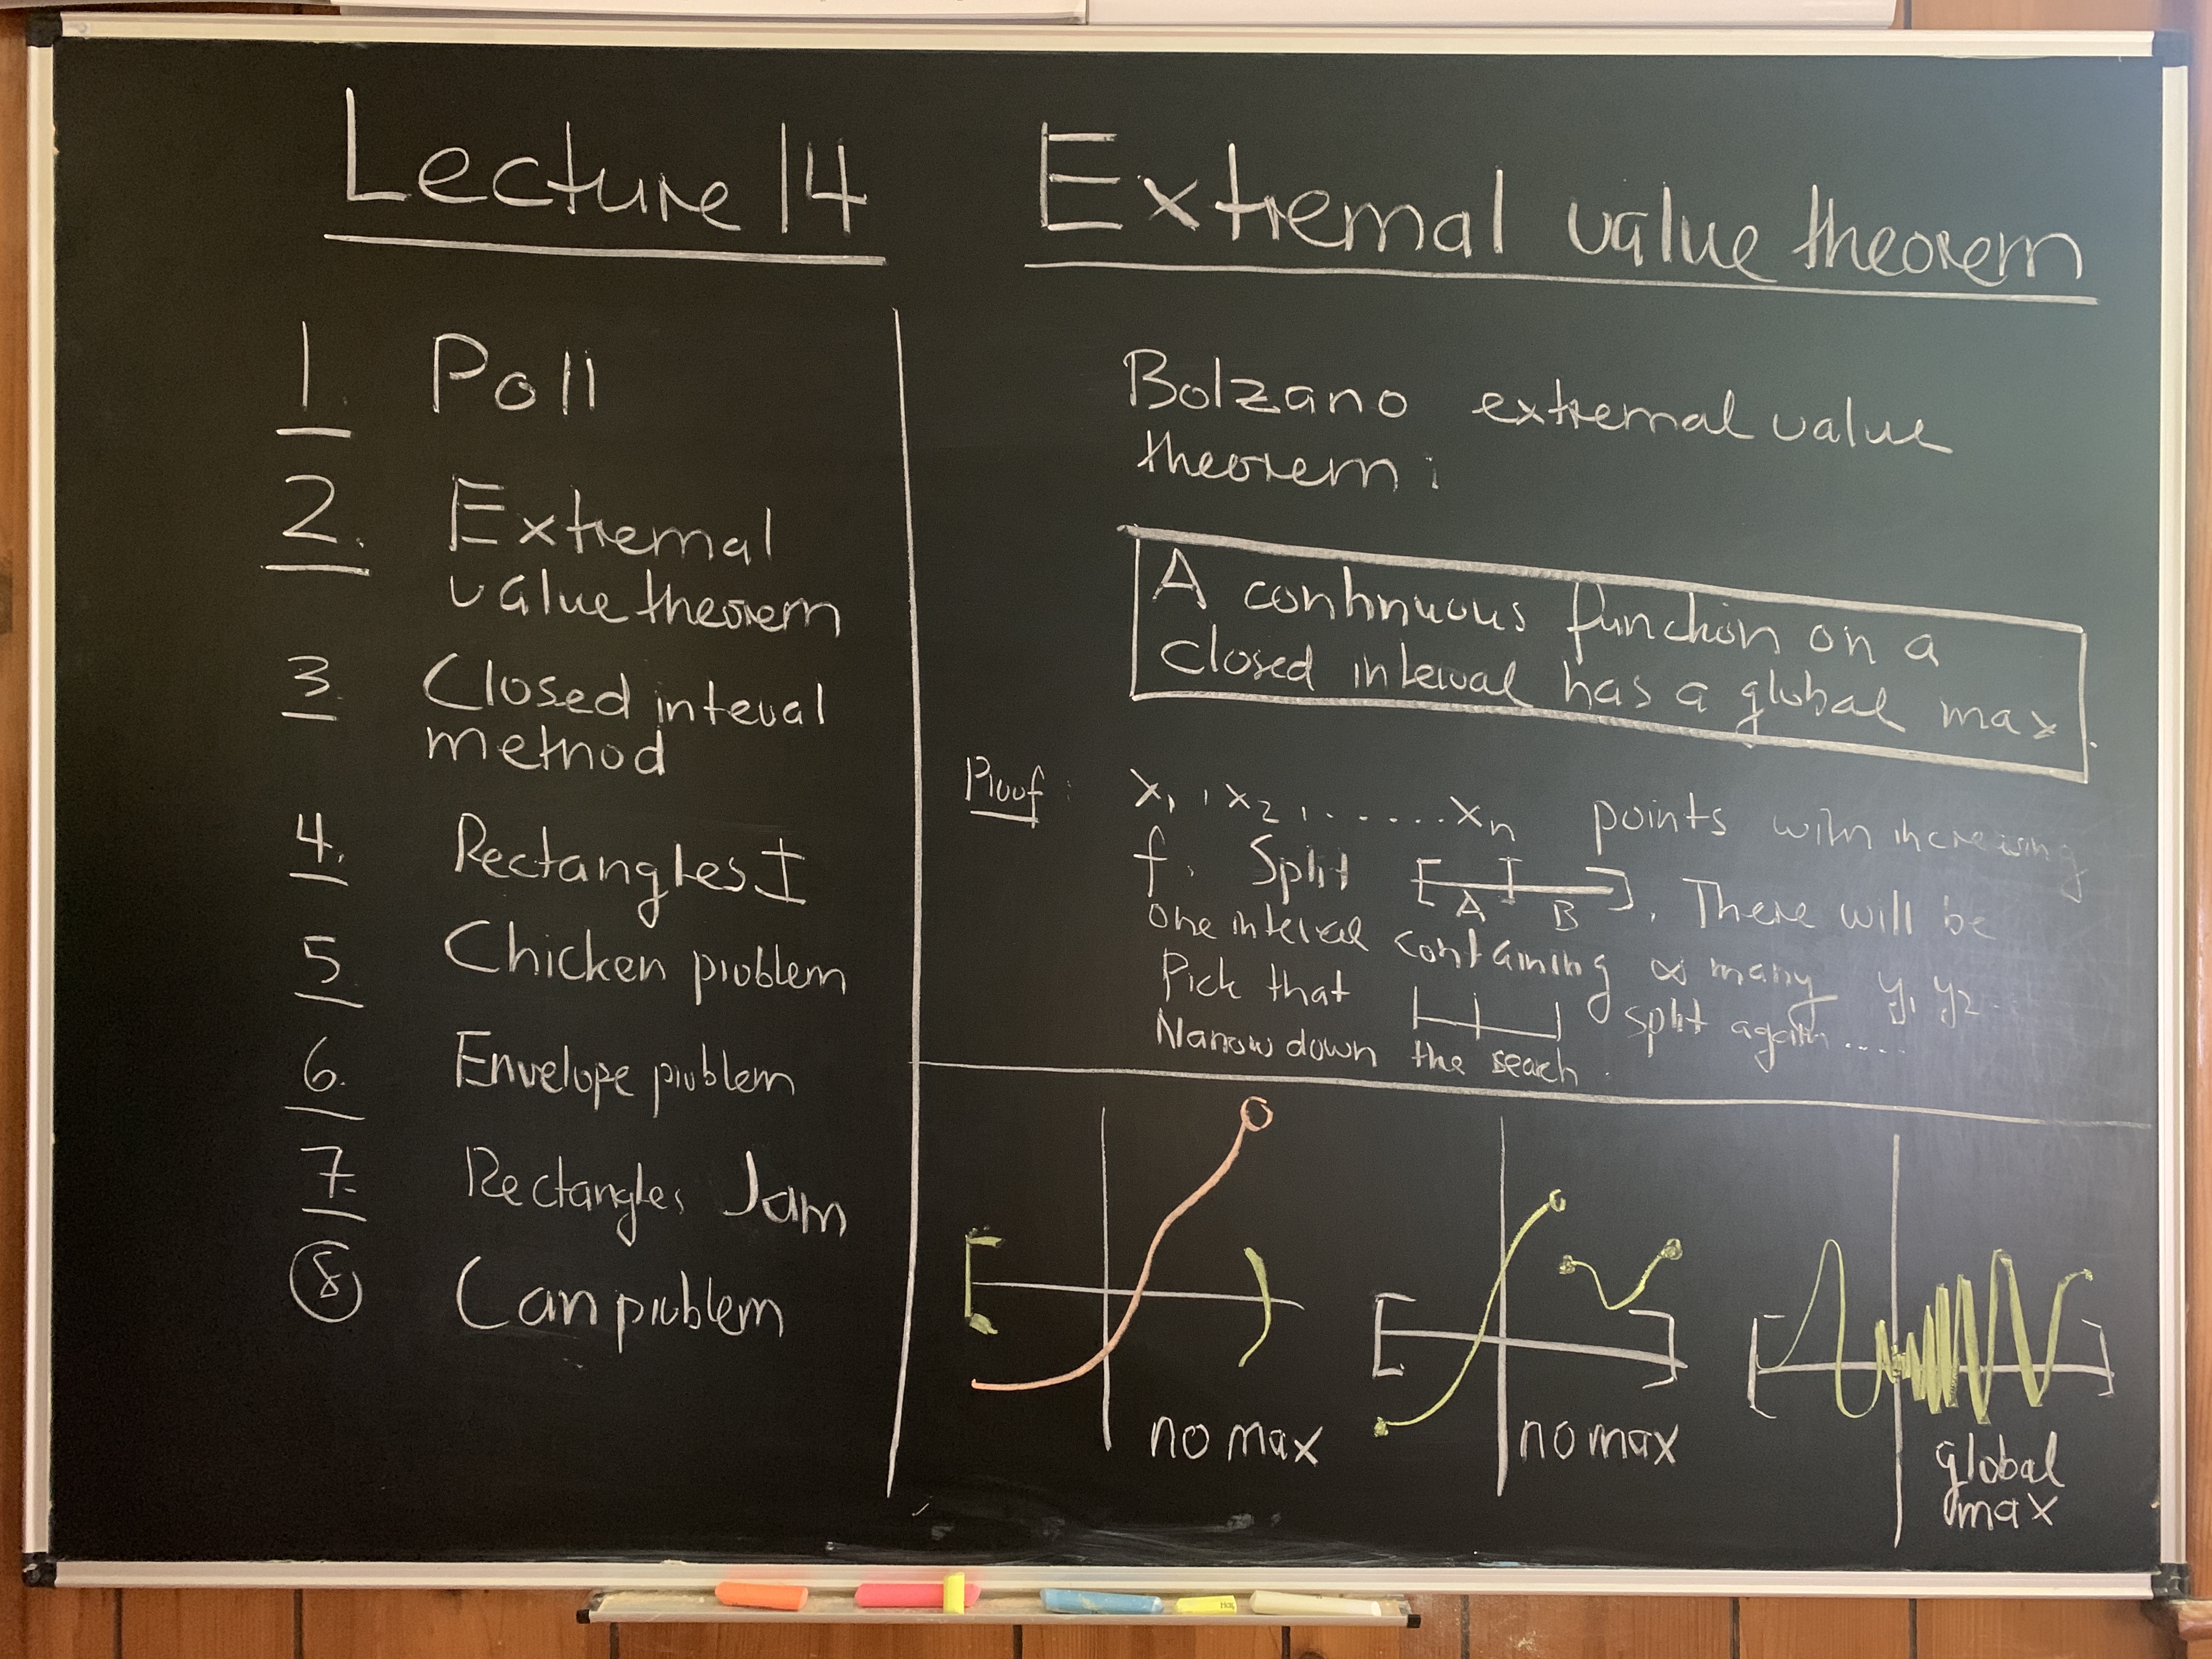 Lecture 14
1. Poll
2. Extremal
value theorem
3. Closed inteval
method
4. Rectangles I
5. Chicken problem
6. Envelope problem
7. Rectangles Jam
8 Can problem
Extremal value theorem
Bolzano extremal value
theorem:
A continuous function on a
closed interval has a global max.
Proof: x₁, x₂, ...... xₙ points with increasing
f. Split [ A | B ]. There will be
one interval containing ∞ many y₁ y₂ ...
Pick that split again ....
Narrow down the search.
no max
no max
global
max